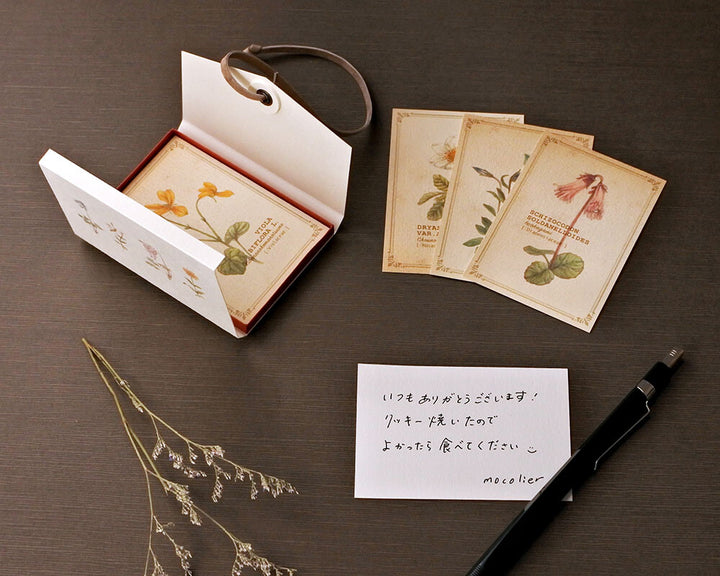 VIOLA
BIFLORA L.
[Violaceae]
DRYAS
VAR.
SCHIZOCODON
SOLDANELLOIDES
いつもありがとうございます!
クッキー焼いたので
よかったら食べてください
mocolier